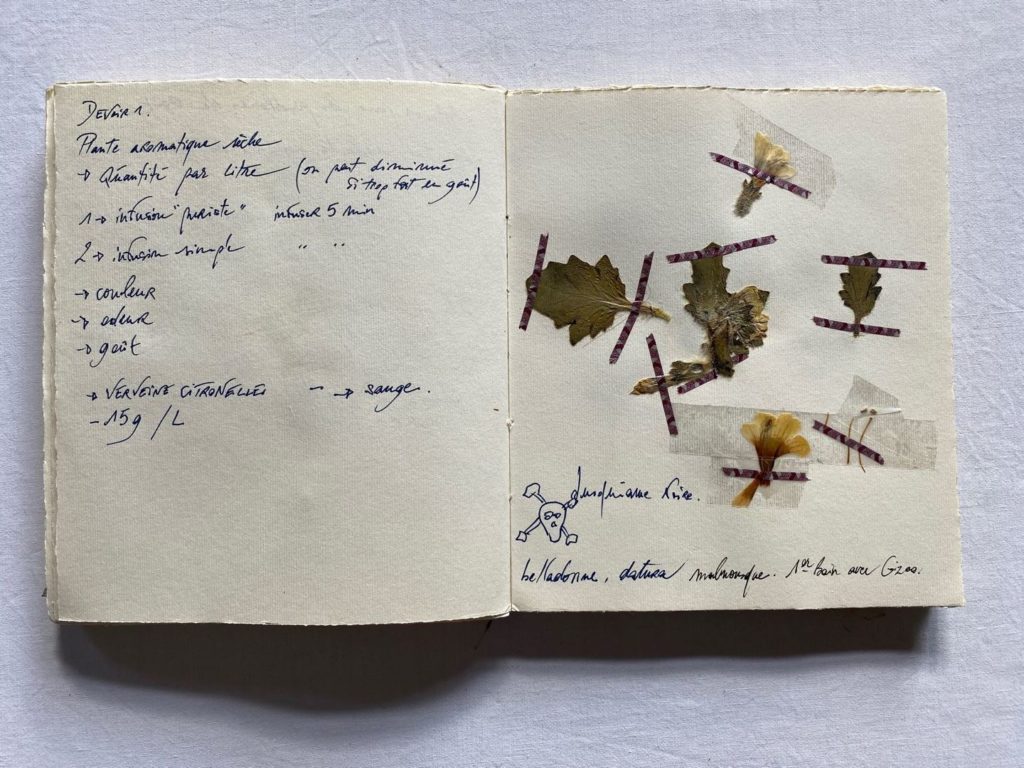 DEVOIR 1.
Plante aromatique sèche
→ Quantité par litre (on peut diminué
si trop fort en goût)
1 → infusion "puriste" infuser 5 min
2 → infusion simple " "
→ couleur
→ odeur
→ goût
→ VERVEINE CITRONELLE - → sauge.
- 15g / L
Jusquiame Noire.
belladonne, datura malmousque. 1er bain avec